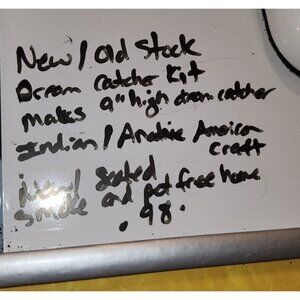 New / Old Stock
Dream catcher Kit
makes 9" high dream catcher
Indian / Amerian
craft
new / sealed
smoke and pet free home
.98.